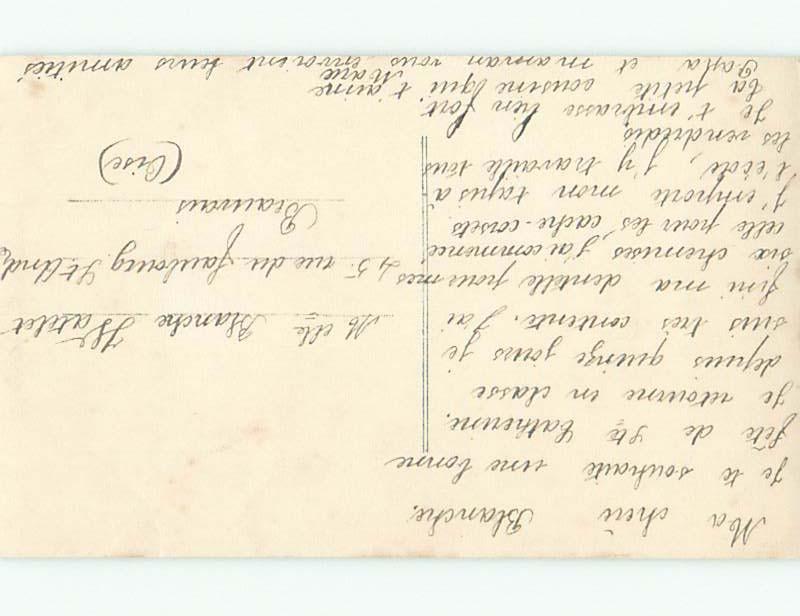 Ma chère Blanche.
Je te souhaite une bonne
fête de Ste Catherine.
Je retourne en classe
depuis quinze jours je
suis très contente. J'ai
fini ma dentelle pour mes
six chemises, j'ai commencé
celle pour les cache-corsets
j'emporte mon tapis à
l'école, j'y travaille tous
les vendredis
Je t'embrasse bien fort.
La petite cousine qui t'aime
Marie
Papa et maman vous envoient leurs amitiés
Melle Blanche Watelet
45 rue du faubourg St André
Beauvais
(Oise)